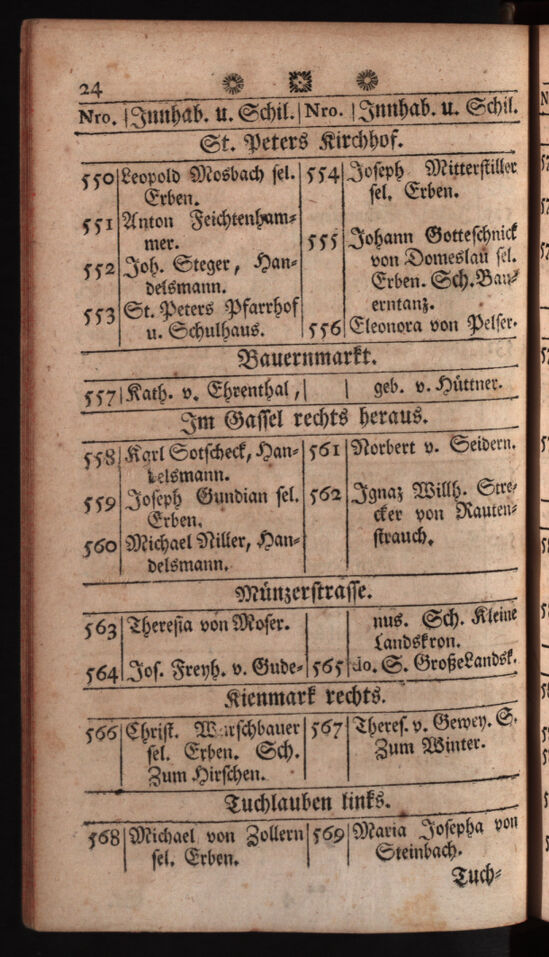 24
Nro. Innhab. u. Schil. Nro. Innhab. u. Schil.
St. Peters Kirchhof.
550 Leopold Mosbach sel.
Erben.
551 Anton Feichtenham=
mer.
552 Joh. Steger, Han=
delsmann.
553 St. Peters Pfarrhof
u. Schulhaus.
554 Joseph Mitterstiller
sel. Erben.
555 Johann Gotteschnick
von Domeslau sel.
Erben. Sch. Bau=
erntanz.
556 Eleonora von Pelser.
Bauernmarkt.
557 Kath. v. Ehrenthal, geb. v. Hüttner.
Im Gassel rechts heraus.
558 Karl Sotscheck, Han=
delsmann.
559 Joseph Gundian sel.
Erben.
560 Michael Niller, Han=
delsmann.
561 Norbert v. Seidern.
562 Ignaz Willh. Stre=
cker von Rauten=
strauch.
Münzerstrasse.
563 Theresia von Moser.
564 Jos. Freyh. v. Gude=
nus. Sch. Kleine
Landskron.
565 do. S. Große Landsk.
Kienmark rechts.
566 Christ. Wurschbauer
sel. Erben. Sch.
Zum Hirschen.
567 Theres. v. Gewey. S.
Zum Winter.
Tuchlauben links.
568 Michael von Zollern
sel. Erben.
569 Maria Josepha von
Steinbach.
Tuch=